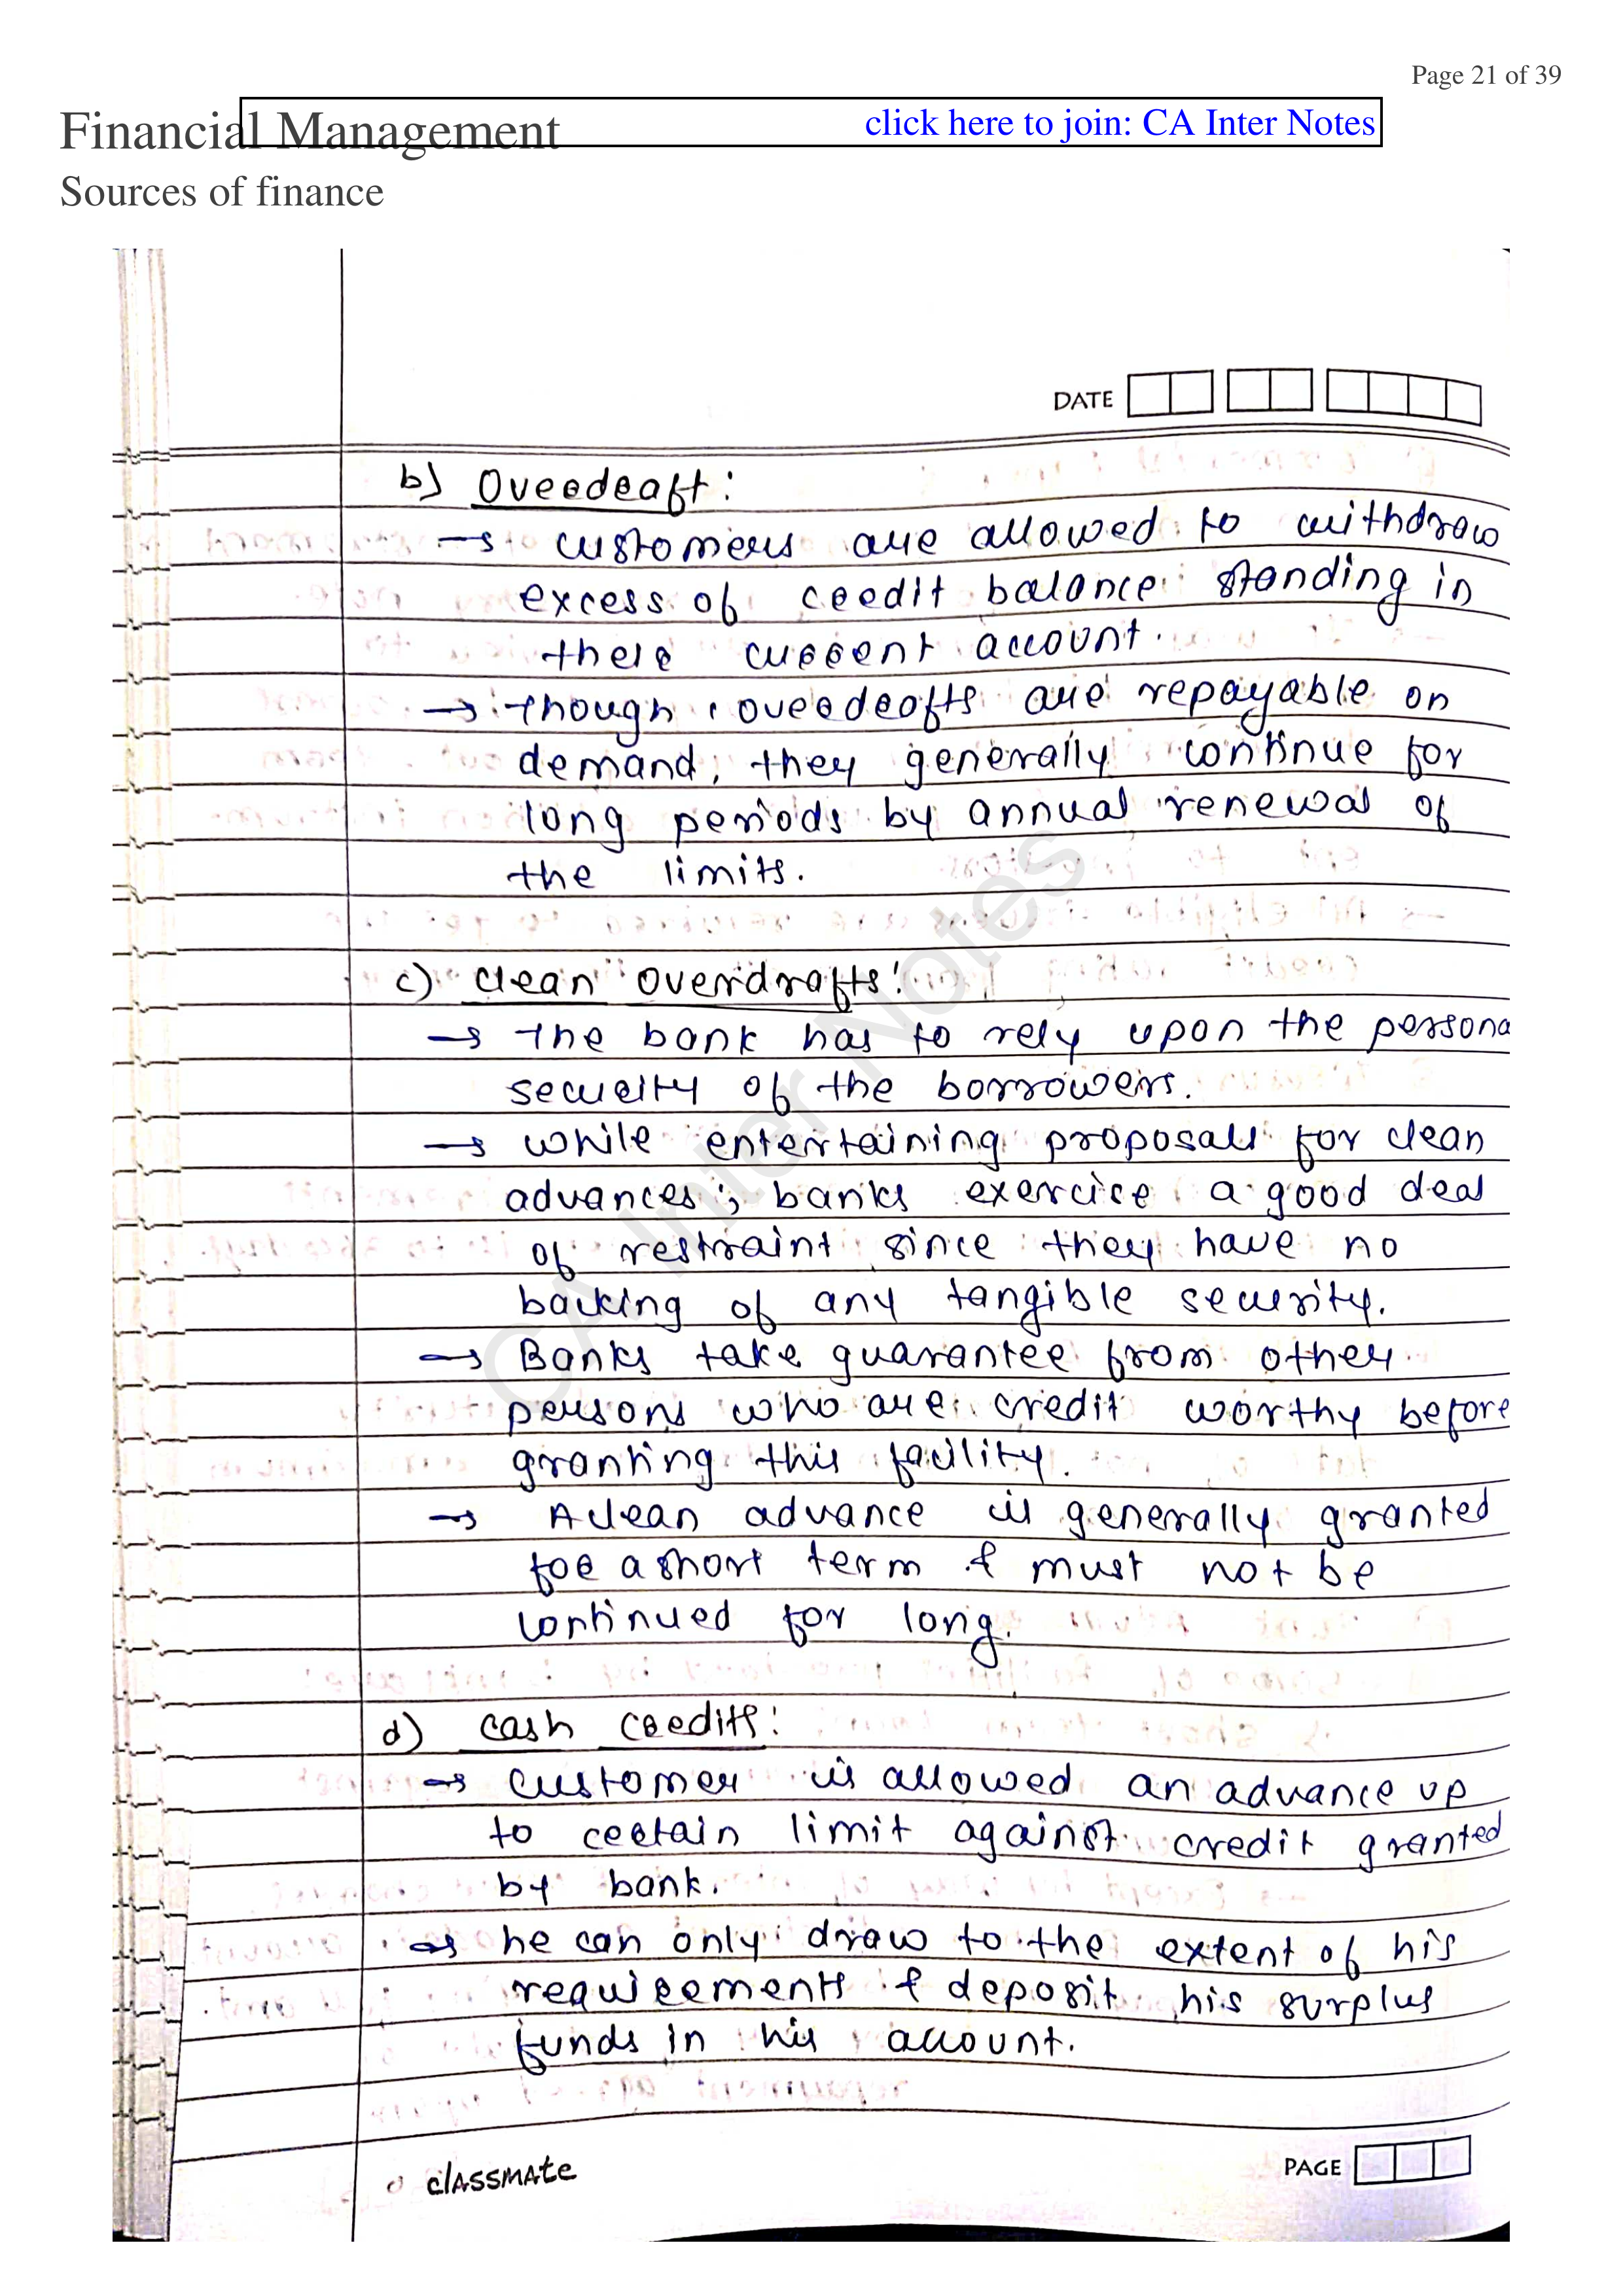 Page 21 of 39
Financial Management
click here to join: CA Inter Notes
Sources of finance
DATE
b) Overdraft:
→ customers are allowed to withdraw
excess of credit balance standing in
there current account.
→ though, overdrafts are repayable on
demand, they generally continue for
long periods by annual renewal of
the limits.
c) clean overdrafts:
→ the bank has to rely upon the persona
security of the borrowers.
→ while entertaining proposals for clean
advances; banks exercise a good deal
of restraint since they have no
backing of any tangible security.
→ Banks take guarantee from other
persons who are credit worthy before
granting this facility.
→ A clean advance is generally granted
for a short term & must not be
continued for long.
d) cash credits:
→ customer is allowed an advance up
to certain limit against credit granted
by bank.
→ he can only draw to the extent of his
requirements & deposit his surplus
funds in his account.
CA Inter Notes
classmate
PAGE